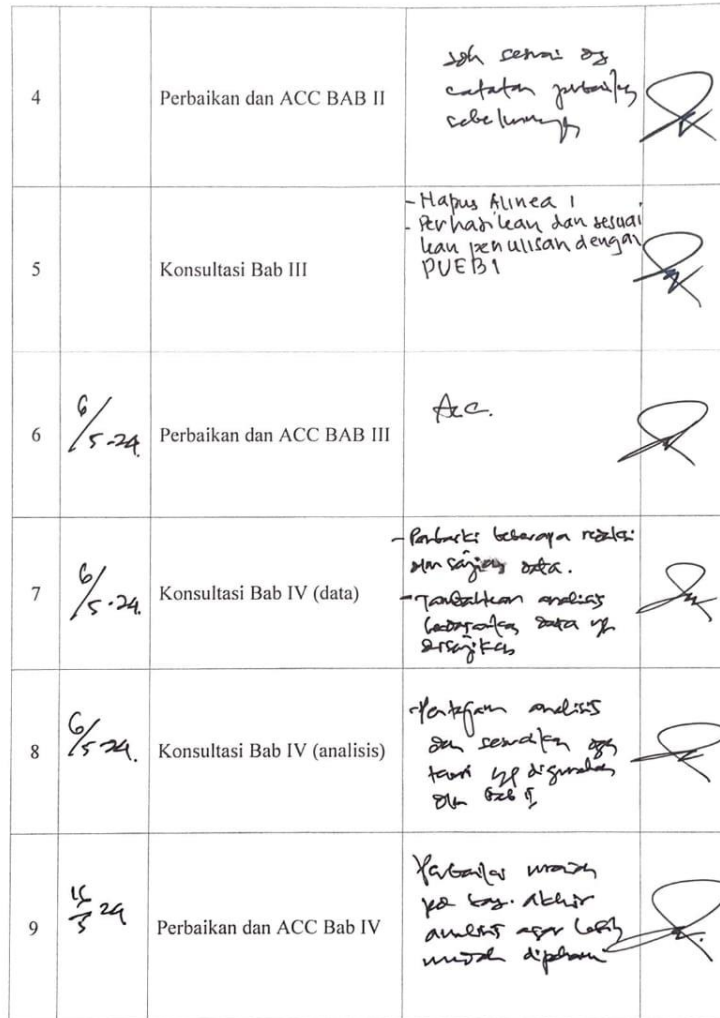 4
Perbaikan dan ACC BAB II
sdh sesuai dg
catatan perbaikan
sebelumnya
5
Konsultasi Bab III
- Hapus Alinea 1
- Perhatikan dan sesuai
kan penulisan dengan
PUEBI
6
6/5-24
Perbaikan dan ACC BAB III
Acc.
7
6/5-24.
Konsultasi Bab IV (data)
- Perbaiki beberapa redaksi
dlm sajian data.
- Tambahkan analisis
berdasarkan data yg
disajikan
8
6/5-24.
Konsultasi Bab IV (analisis)
- Pertajam analisis
dan sesuaikan dgn
teori yg digunakan
dlm Bab II
9
24
Perbaikan dan ACC Bab IV
Perbaikan
akhir
analisis agar lebih
mudah dipahami